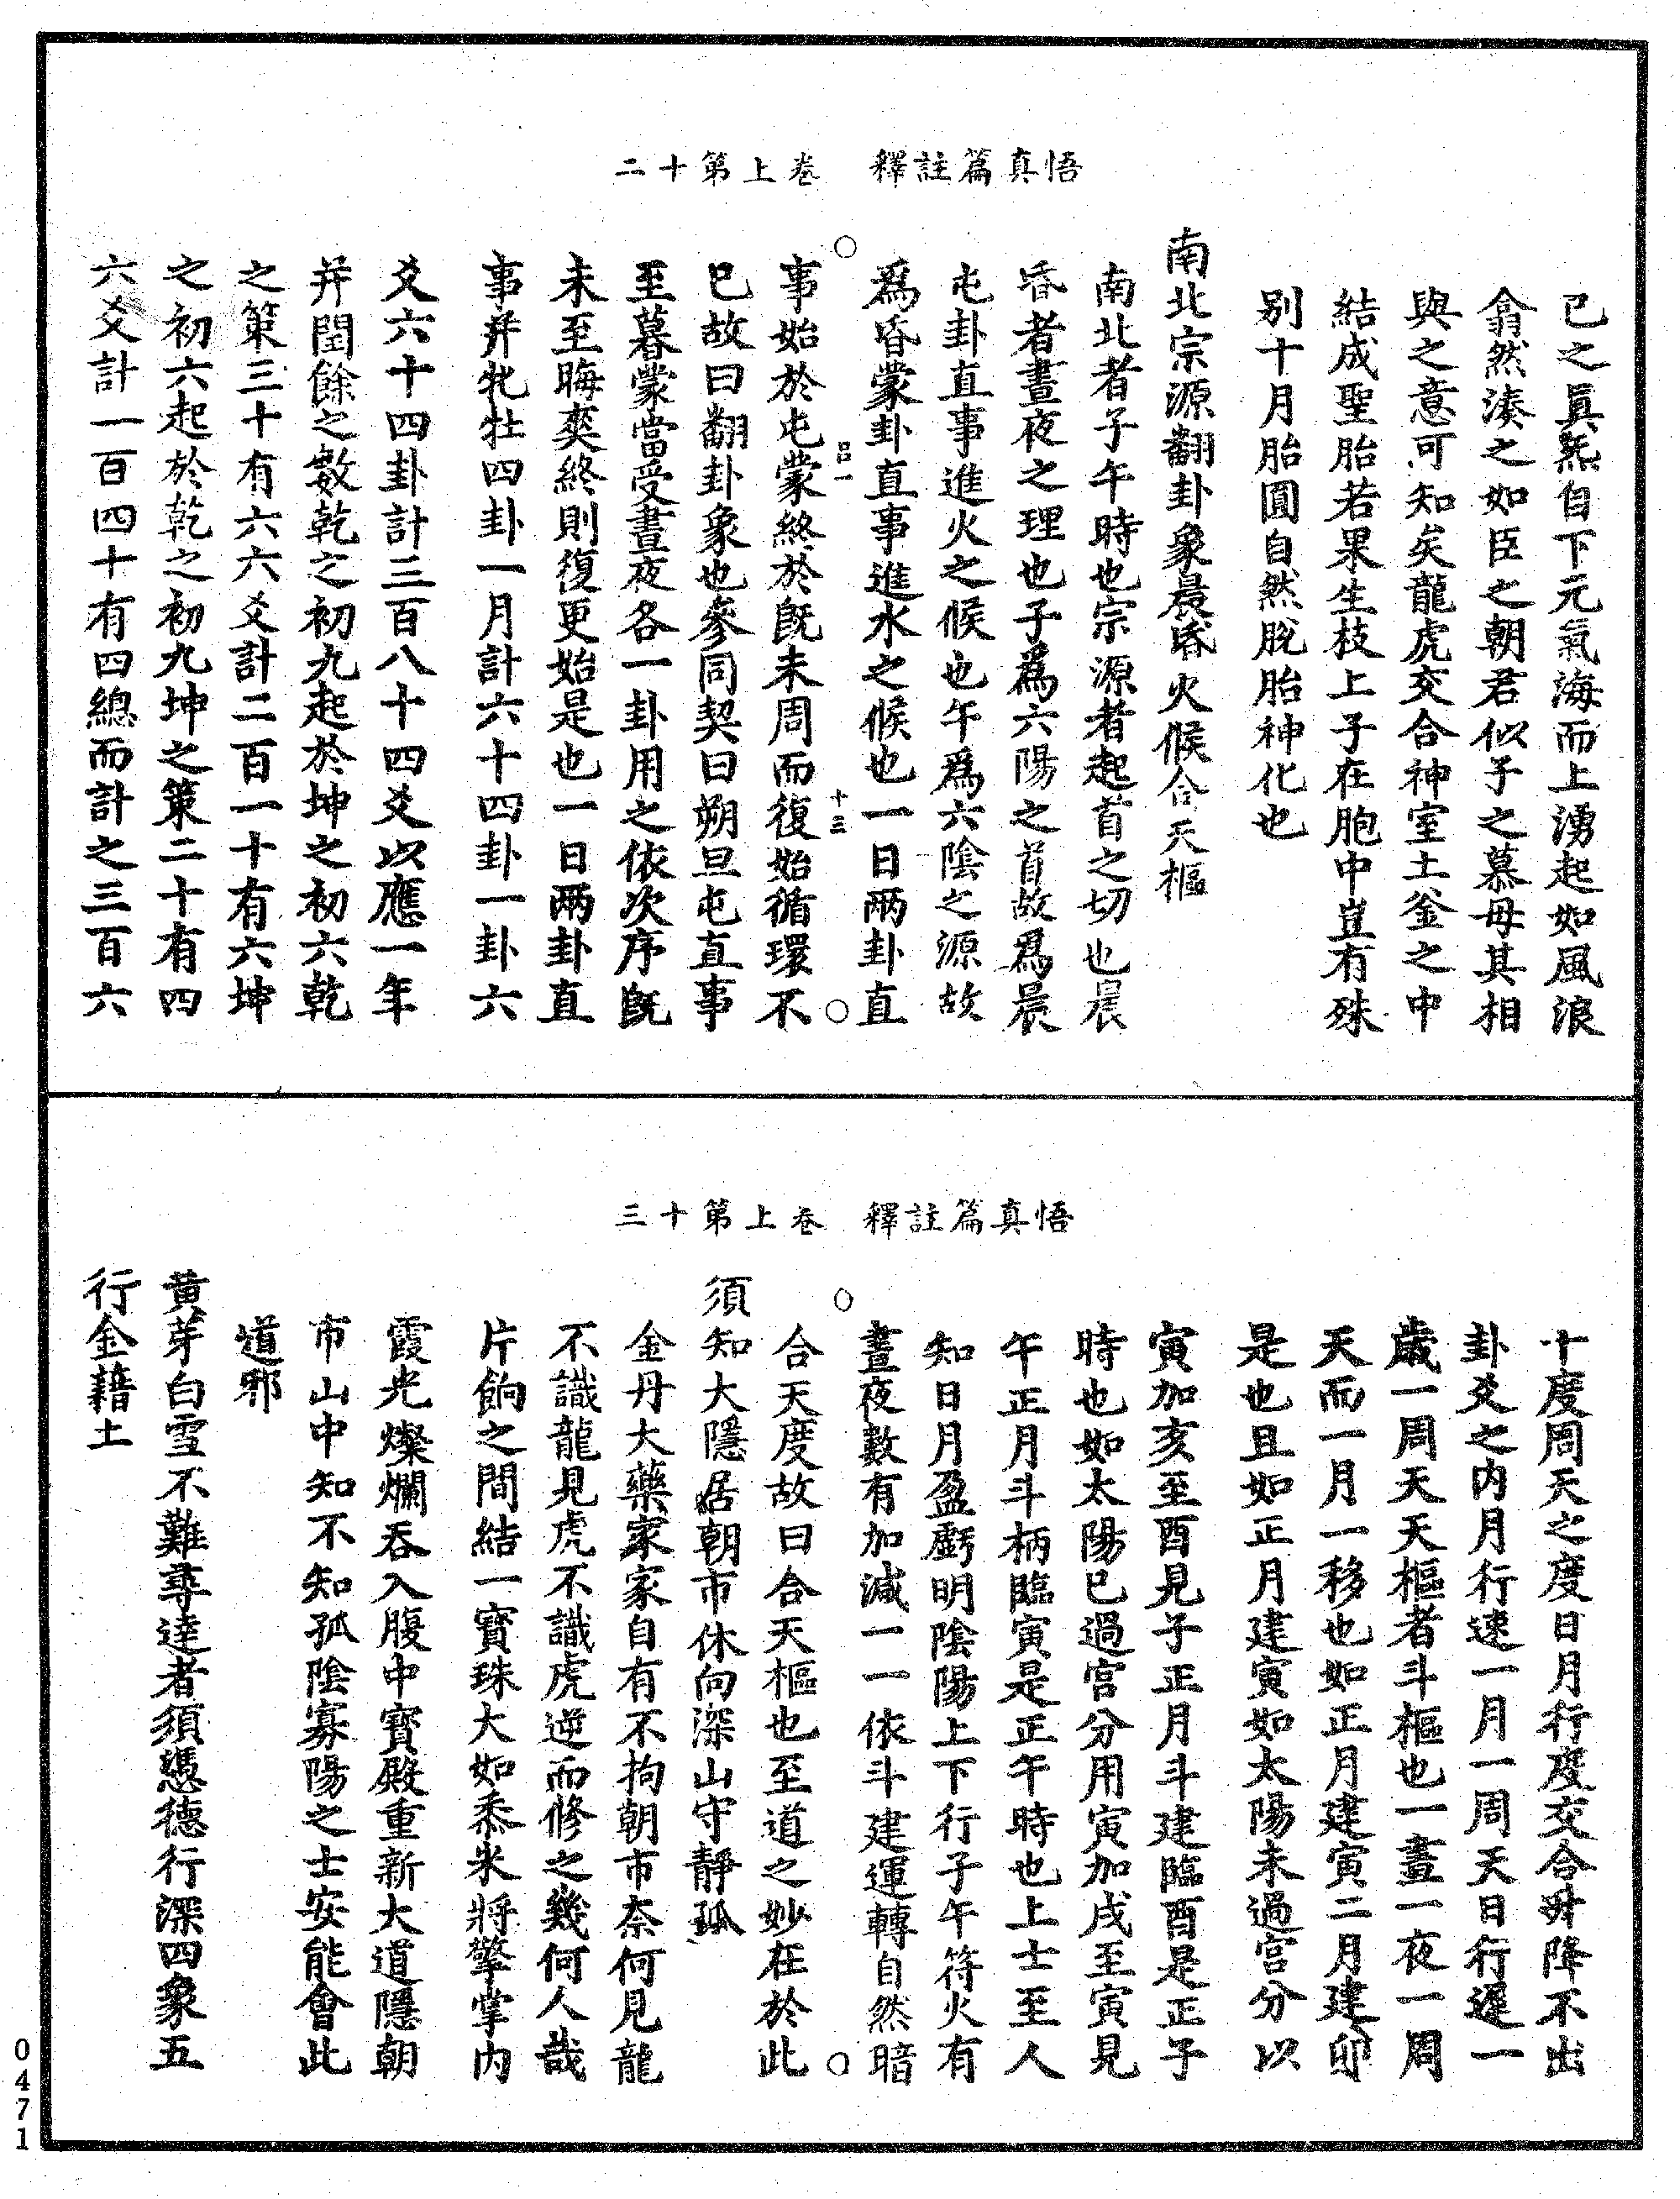 悟真篇註釋　卷上第十二
己之眞炁自下元氣海而上湧起如風浪
翕然湊之如臣之朝君似子之慕母其相
與之意可知矣龍虎交合神室土釜之中
結成聖胎若果生枝上子在胞中豈有殊
别十月胎圓自然脫胎神化也
南北宗源翻卦象晨昏火候合天樞
南北者子午時也宗源者起首之切也晨
昏者晝夜之理也子爲六陽之首故爲晨
屯卦直事進火之候也午爲六陰之源故
爲昏蒙卦直事進水之候也一日兩卦直
呂一　十三
事始於屯蒙終於旣未周而復始循環不
已故曰翻卦象也參同契曰朔旦屯直事
至暮蒙當受晝夜各一卦用之依次序旣
未至晦爽終則復更始是也一日兩卦直
事并牝牡四卦一月計六十四卦一卦六
爻六十四卦計三百八十四爻以應一年
并閏餘之數乾之初九起於坤之初六乾
之策三十有六六爻計二百一十有六坤
之初六起於乾之初九坤之策二十有四
六爻計一百四十有四總而計之三百六
悟真篇註釋　卷上第十三
十度周天之度日月行度交合昇降不出
卦爻之内月行速一月一周天日行遲一
歲一周天天樞者斗樞也一晝一夜一周
天而一月一移也如正月建寅二月建卯
是也且如正月建寅如太陽未過宫分以
寅加亥至酉見子正月斗建臨酉是正子
時也如太陽已過宫分用寅加戌至寅見
午正月斗柄臨寅是正午時也上士至人
知日月盈虧明陰陽上下行子午符火有
晝夜數有加減一一依斗建運轉自然暗
合天度故曰合天樞也至道之妙在於此
須知大隱居朝市休向深山守靜孤
金丹大藥家家自有不拘朝市奈何見龍
不識龍見虎不識虎逆而修之幾何人哉
片餉之間結一寶珠大如黍米將擎掌内
霞光燦爛吞入腹中寶殿重新大道隱朝
市山中知不知孤陰寡陽之士安能會此
道邪
黄芽白雪不難尋達者須憑德行深四象五
行金藉土
0471